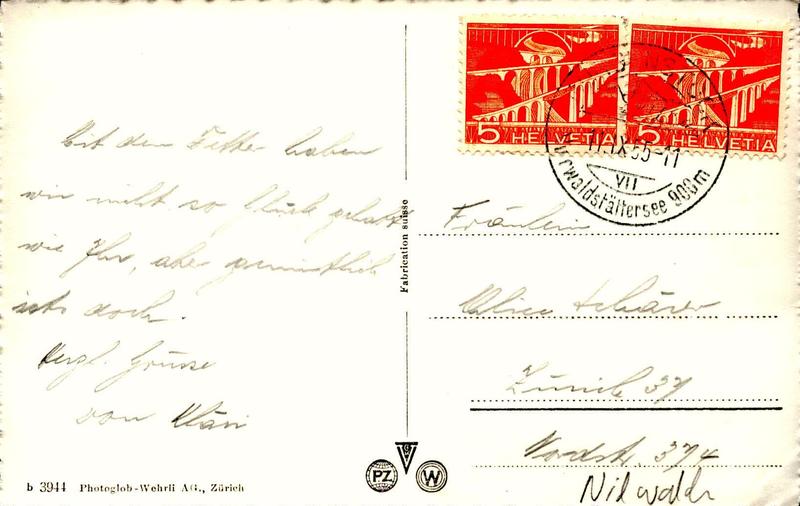 Mit dem Wetter haben
wir nicht so Glück gehabt
wie Ihr, aber gemütlich
ists doch.
Herzl. Grüsse
von Kläri
b 3944 Photoglob-Wehrli A.G., Zürich
Fabrication suisse
PZ
W
5 HELVETIA
5 HELVETIA
11.IX.55-11
VII
Vierwaldstättersee 900m
Fräulein
Alice Schärer
Zürich 37
Nordstr. 374
Nidwalden